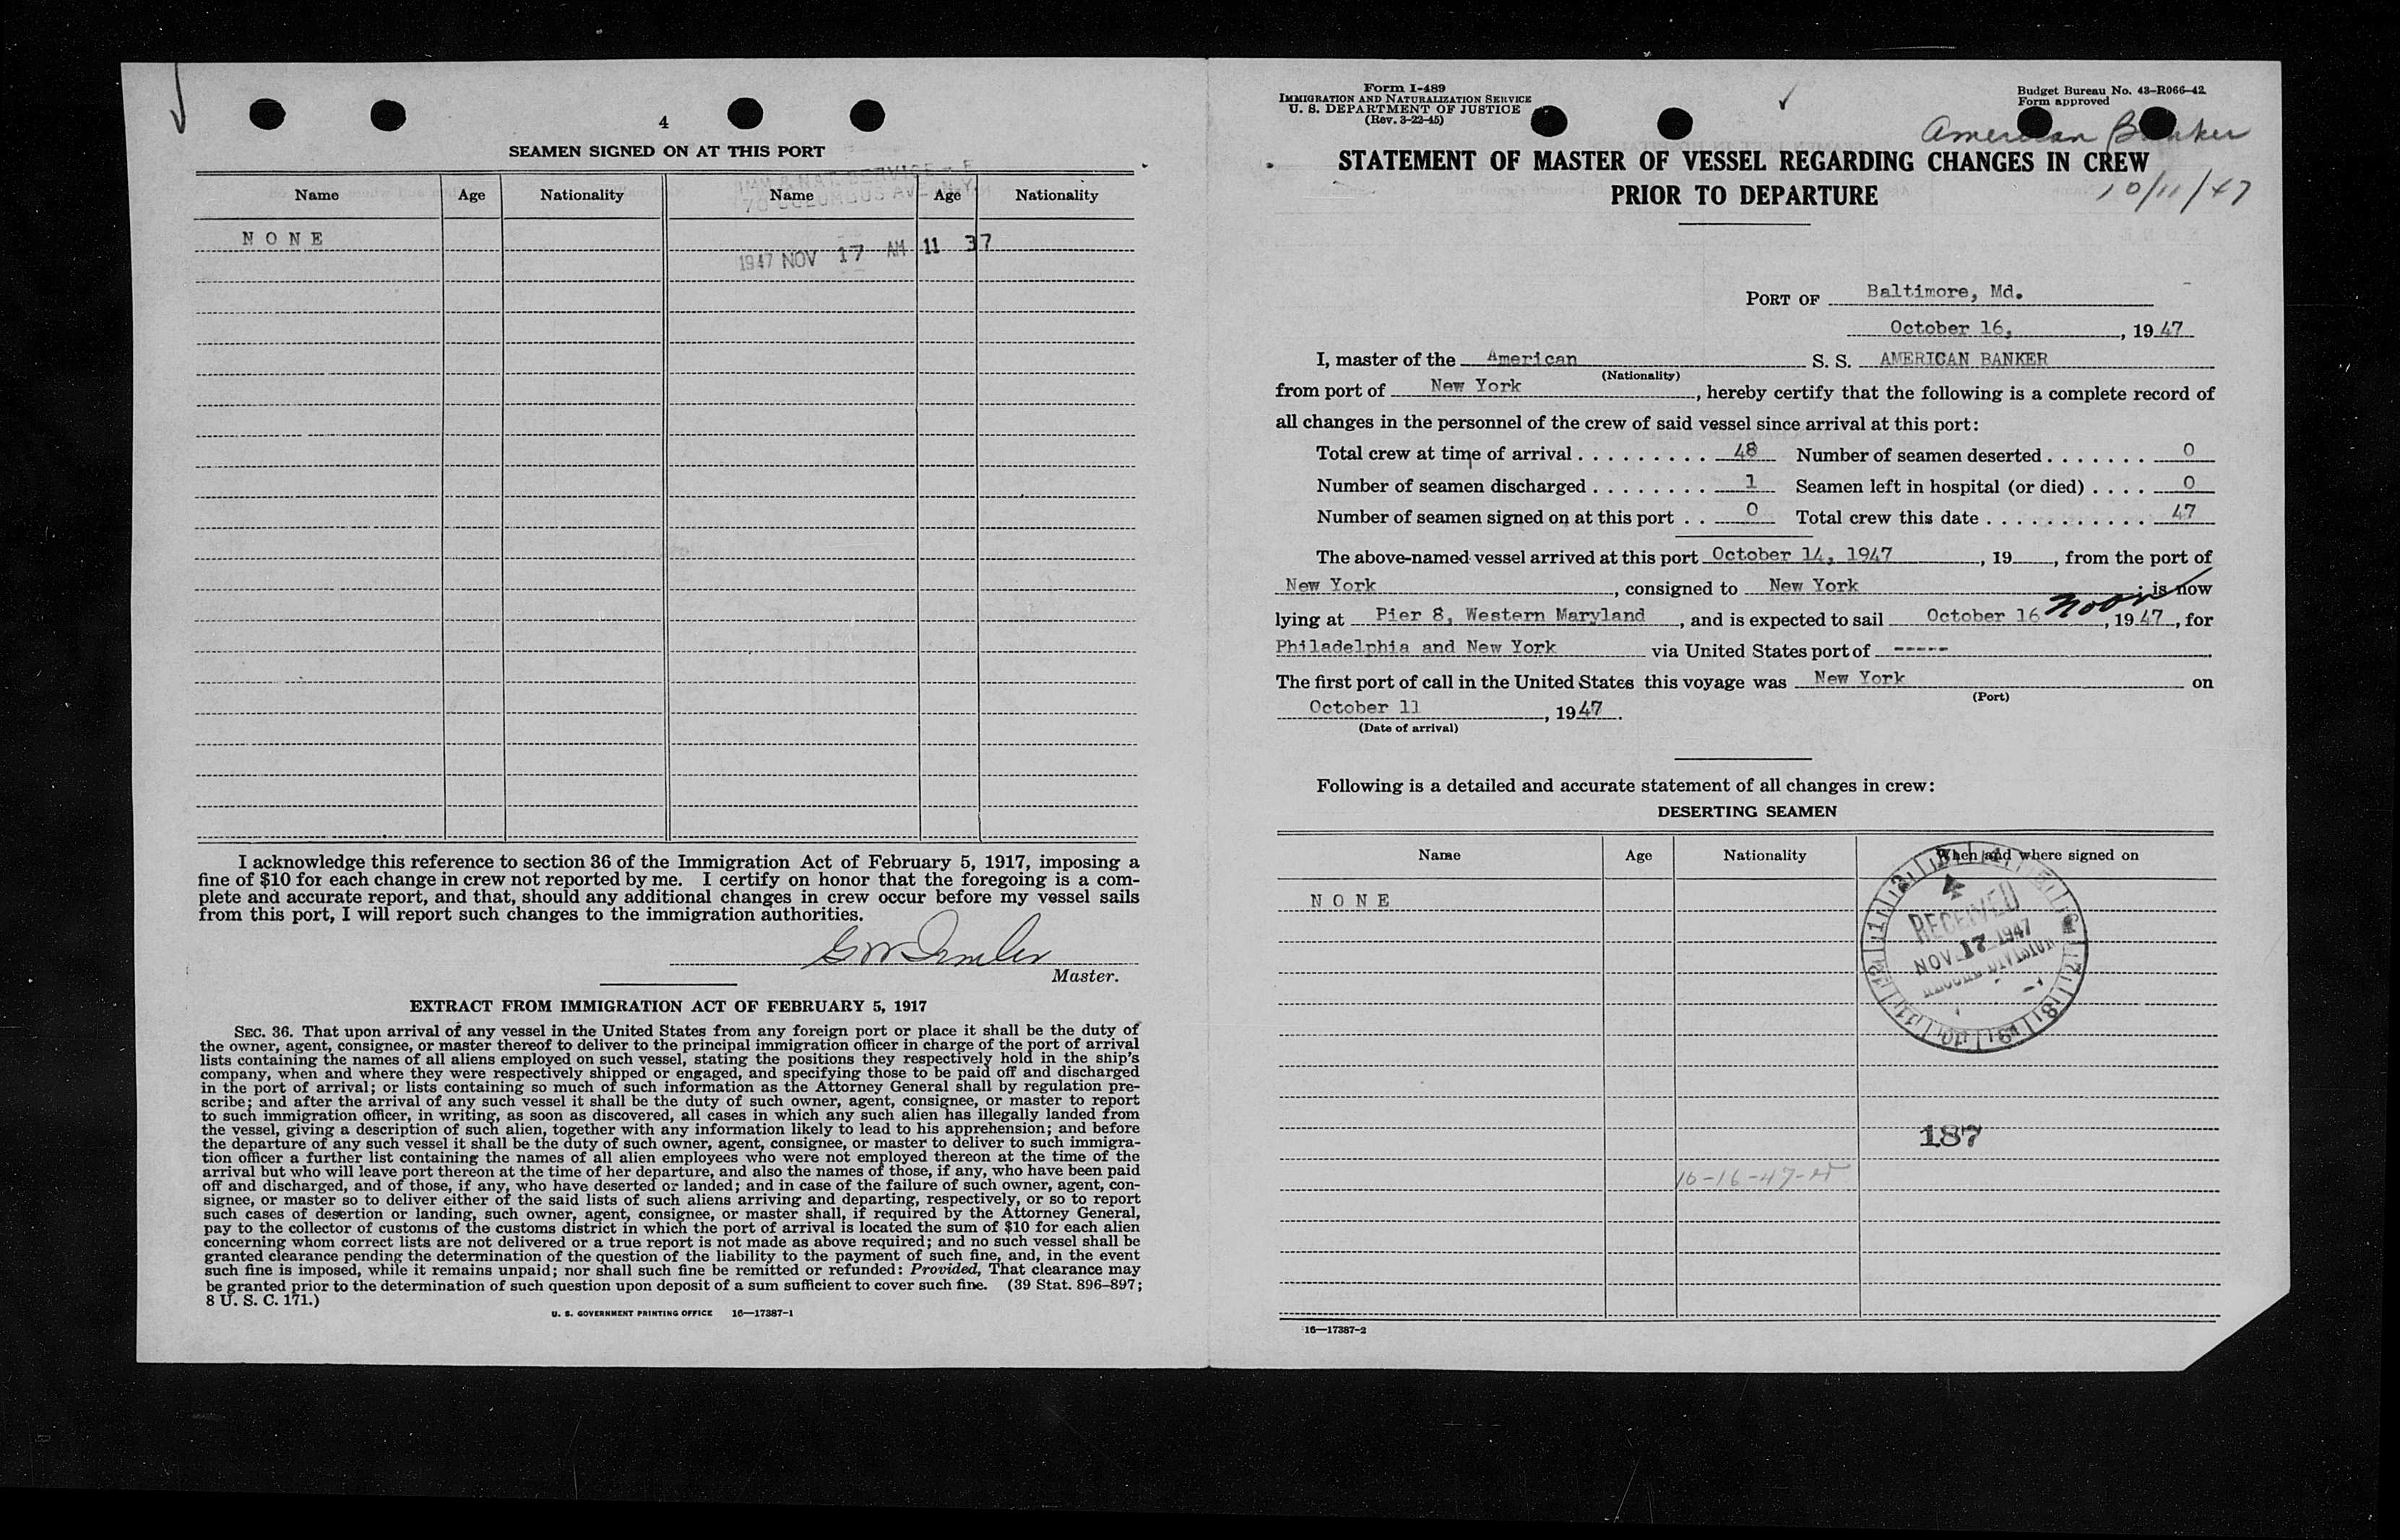 4
SEAMEN SIGNED ON AT THIS PORT
Name Age Nationality Name Age Nationality
70 COLUMBUS AVE. N.Y.
N O N E
1947 NOV 17 AM 11 37
I acknowledge this reference to section 36 of the Immigration Act of February 5, 1917, imposing a
fine of $10 for each change in crew not reported by me. I certify on honor that the foregoing is a com-
plete and accurate report, and that, should any additional changes in crew occur before my vessel sails
from this port, I will report such changes to the immigration authorities.
Master.
EXTRACT FROM IMMIGRATION ACT OF FEBRUARY 5, 1917
SEC. 36. That upon arrival of any vessel in the United States from any foreign port or place it shall be the duty of
the owner, agent, consignee, or master thereof to deliver to the principal immigration officer in charge of the port of arrival
lists containing the names of all aliens employed on such vessel, stating the positions they respectively hold in the ship's
company, when and where they were respectively shipped or engaged, and specifying those to be paid off and discharged
in the port of arrival; or lists containing so much of such information as the Attorney General shall by regulation pre-
scribe; and after the arrival of any such vessel it shall be the duty of such owner, agent, consignee, or master to report
to such immigration officer, in writing, as soon as discovered, all cases in which any such alien has illegally landed from
the vessel, giving a description of such alien, together with any information likely to lead to his apprehension; and before
the departure of any such vessel it shall be the duty of such owner, agent, consignee, or master to deliver to such immigra-
tion officer a further list containing the names of all alien employees who were not employed thereon at the time of the
arrival but who will leave port thereon at the time of her departure, and also the names of those, if any, who have been paid
off and discharged, and of those, if any, who have deserted or landed; and in case of the failure of such owner, agent, con-
signee, or master so to deliver either of the said lists of such aliens arriving and departing, respectively, or so to report
such cases of desertion or landing, such owner, agent, consignee, or master shall, if required by the Attorney General,
pay to the collector of customs of the customs district in which the port of arrival is located the sum of $10 for each alien
concerning whom correct lists are not delivered or a true report is not made as above required; and no such vessel shall be
granted clearance pending the determination of the question of the liability to the payment of such fine, and, in the event
such fine is imposed, while it remains unpaid; nor shall such fine be remitted or refunded: Provided, That clearance may
be granted prior to the determination of such question upon deposit of a sum sufficient to cover such fine. (39 Stat. 896–897;
8 U. S. C. 171.)
U. S. GOVERNMENT PRINTING OFFICE 16—17387-1
Form I-489
IMMIGRATION AND NATURALIZATION SERVICE
U. S. DEPARTMENT OF JUSTICE
(Rev. 3-22-45)
Budget Bureau No. 43–R066–42
Form approved
American Banker
STATEMENT OF MASTER OF VESSEL REGARDING CHANGES IN CREW
PRIOR TO DEPARTURE
10/11/47
PORT OF Baltimore, Md.
October 16, , 1947
I, master of the American S. S. AMERICAN BANKER
(Nationality)
from port of New York , hereby certify that the following is a complete record of
all changes in the personnel of the crew of said vessel since arrival at this port:
Total crew at time of arrival . . . . . . . . . 48 Number of seamen deserted . . . . . . . 0
Number of seamen discharged . . . . . . . . 1 Seamen left in hospital (or died) . . . . 0
Number of seamen signed on at this port . . 0 Total crew this date . . . . . . . . . . . 47
The above-named vessel arrived at this port October 14, 1947 , 19 , from the port of
New York , consigned to New York ; is now
lying at Pier 8, Western Maryland , and is expected to sail October 16 Noon , 1947 , for
Philadelphia and New York via United States port of -----
The first port of call in the United States this voyage was New York on
(Port)
October 11 , 1947 .
(Date of arrival)
Following is a detailed and accurate statement of all changes in crew:
DESERTING SEAMEN
Name Age Nationality When and where signed on
N O N E
RECEIVED
NOV 17 1947
DIVISION
187
10-16-47
16—17387-2